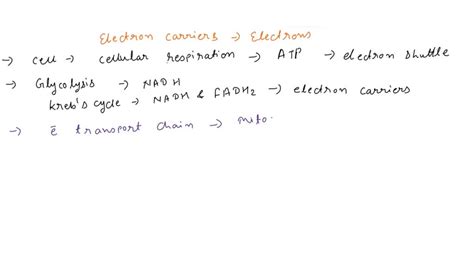 Electron carriers → Electrons
→ cell → cellular respiration → ATP → electron shuttle
→ Glycolysis → NADH
Kreb's cycle → NADH & FADH2 → electron carriers
→ ē transport chain → mito.